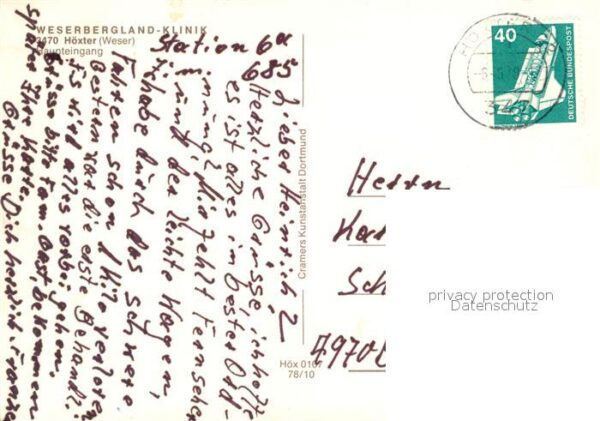 WESERBERGLAND-KLINIK
3470 Höxter (Weser)
Haupteingang
Station 6a
685
Lieber Heinrich!
Herzliche Grüsse, ich hoffe
es ist alles in bester Ord-
nung! Mir fehlt Fernseher
und der leichte Wagen,
ich habe durch das schwere
Tasten schon 1 Kilo verloren.
Gestern war die erste Behandl.
Es wird alles vorbei gehen.
Grüsse bitte Fam.
später Ihre Karte.
Grüsse Dich herzlich
Cramers Kunstanstalt Dortmund
Höx 0107
78/10
40
DEUTSCHE BUNDESPOST
Herrn
privacy protection
Datenschutz